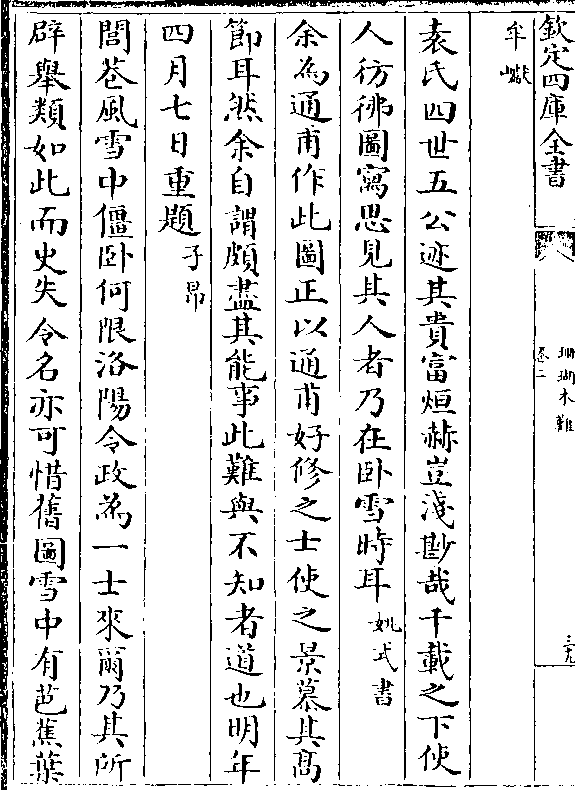 欽定四庫全書
珊瑚木難
卷二
三九
牟巘
袁氏四世五公迹其貴富烜赫豈淺尠哉千載之下使
人彷彿圖寫思見其人者乃在卧雪時耳姚式書
余為通甫作此圖正以通甫好修之士使之景慕其髙
節耳然余自謂頗盡其能事此難與不知者道也明年
四月七日重題子昂
閭巷風雪中僵卧何限洛陽令政為一士來爾乃其所
辟舉類如此而史失令名亦可惜舊圖雪中有芭蕉葉